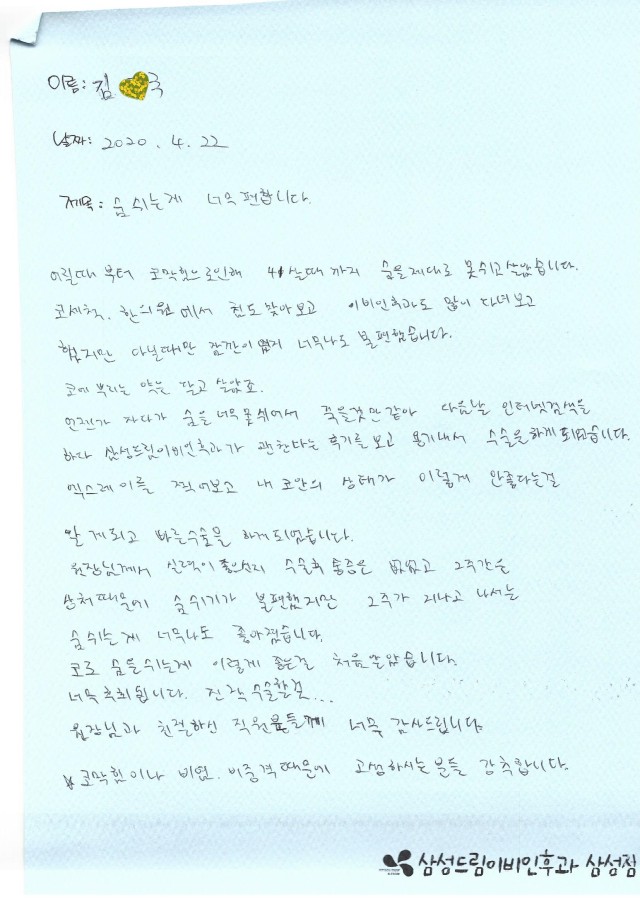 이름: 김 국
날짜: 2020. 4. 22
제목: 숨쉬는게 너무 편합니다.
어릴때 부터 코막힘으로인해 41살때 까지 숨을제대로 못쉬고살았습니다.
코세척, 한의원에서 침도 맞아보고 이비인후과도 많이 다녀보고
했지만 다닐때만 잠깐이였지 너무나도 불편했습니다.
코에 뿌리는 약은 달고 살았죠.
언젠가 자다가 숨을 너무못쉬어서 죽을것만같아 다음날 인터넷검색을
하다 삼성드림이비인후과가 괜찮다는 후기를 보고 용기내서 수술을하게되었습니다.
엑스레이를 찍어보고 내 코안의 상태가 이렇게 안좋다는걸
알게되고 빠른수술을 하게되었습니다.
원장님께서 실력이 좋으신지 수술후 통증은 없었고 2주간은
상처때문에 숨쉬기가 불편했지만 2주가 지나고 나서는
숨쉬는게 너무나도 좋아졌습니다.
코로 숨을쉬는게 이렇게 좋은걸 처음알았습니다.
너무 후회됩니다. 진작 수술할걸...
원장님과 친절하신 직원분들께 너무 감사드립니다.
코막힘이나 비염. 비중격때문에 고생하시는 분들 강추합니다.
삼성드림이비인후과 삼성점